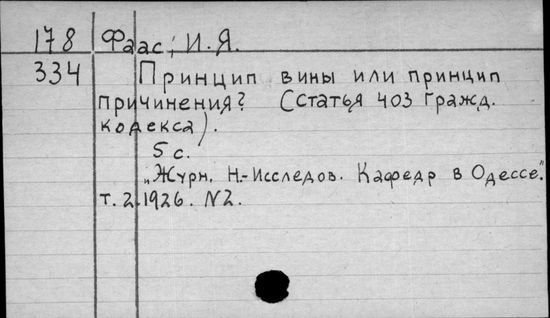 178 Фаас, И.Я.
334 Принцип вины или принцип
причинения? (Статья 403 Гражд.
кодекса).
5 с.
"Журн. Н.-Исследов. Кафедр в Одессе."
т.2.1926. N2.